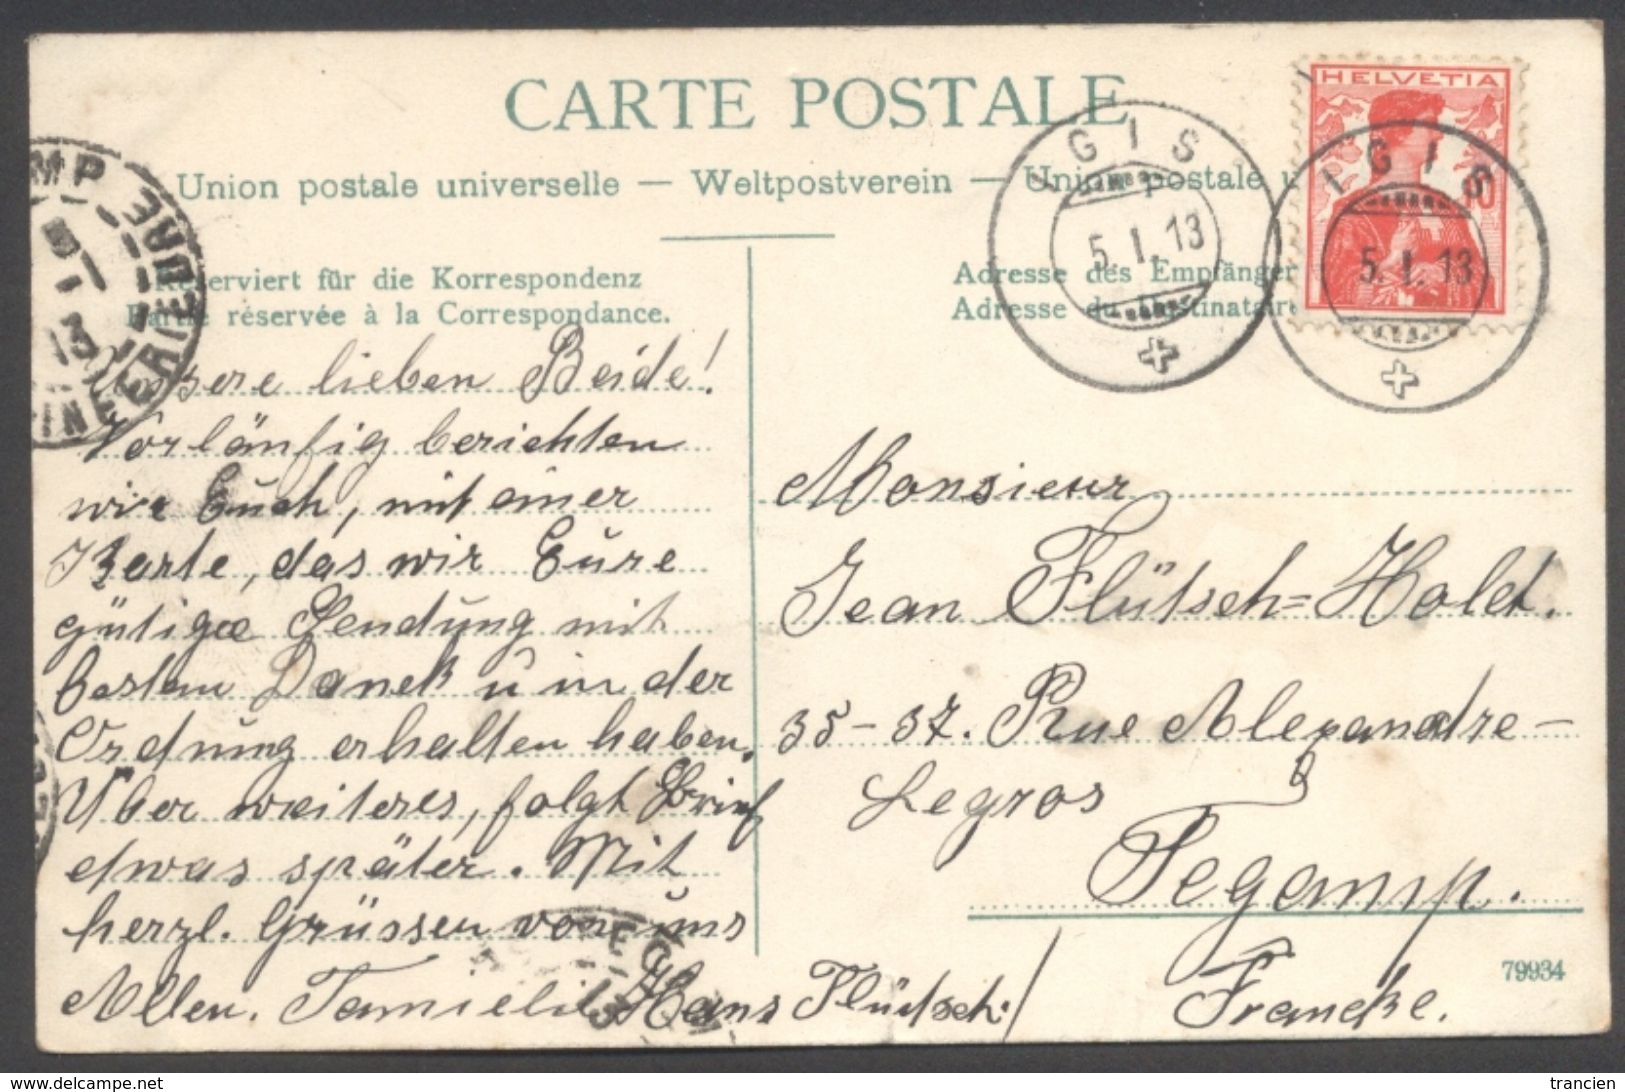 CARTE POSTALE
Union postale universelle — Weltpostverein — Union postale u
Reserviert für die Korrespondenz
Partie réservée à la Correspondance.
Adresse des Empfänger
Adresse du Destinataire
HELVETIA
10
IGIS
5.I.13
IGIS
5.I.13
MP
INFÉRIEURE
13
Unsere lieben Beide!
Vorläufig berichten
wir Euch, mit einer
Karte, das wir Eure
gütige Sendung mit
bestem Danek u in der
Ordnung erhalten haben.
Über weiteres, folgt Brief
etwas später. Mit
herzl. Grüssen von uns
Allen. Familie Hans Flütsch.
Monsieur
Jean Flütsch=Hold.
35-37. Rue Alexandre-
Legros
Fegamp.
Francke.
79934
www.delcampe.net
trancien